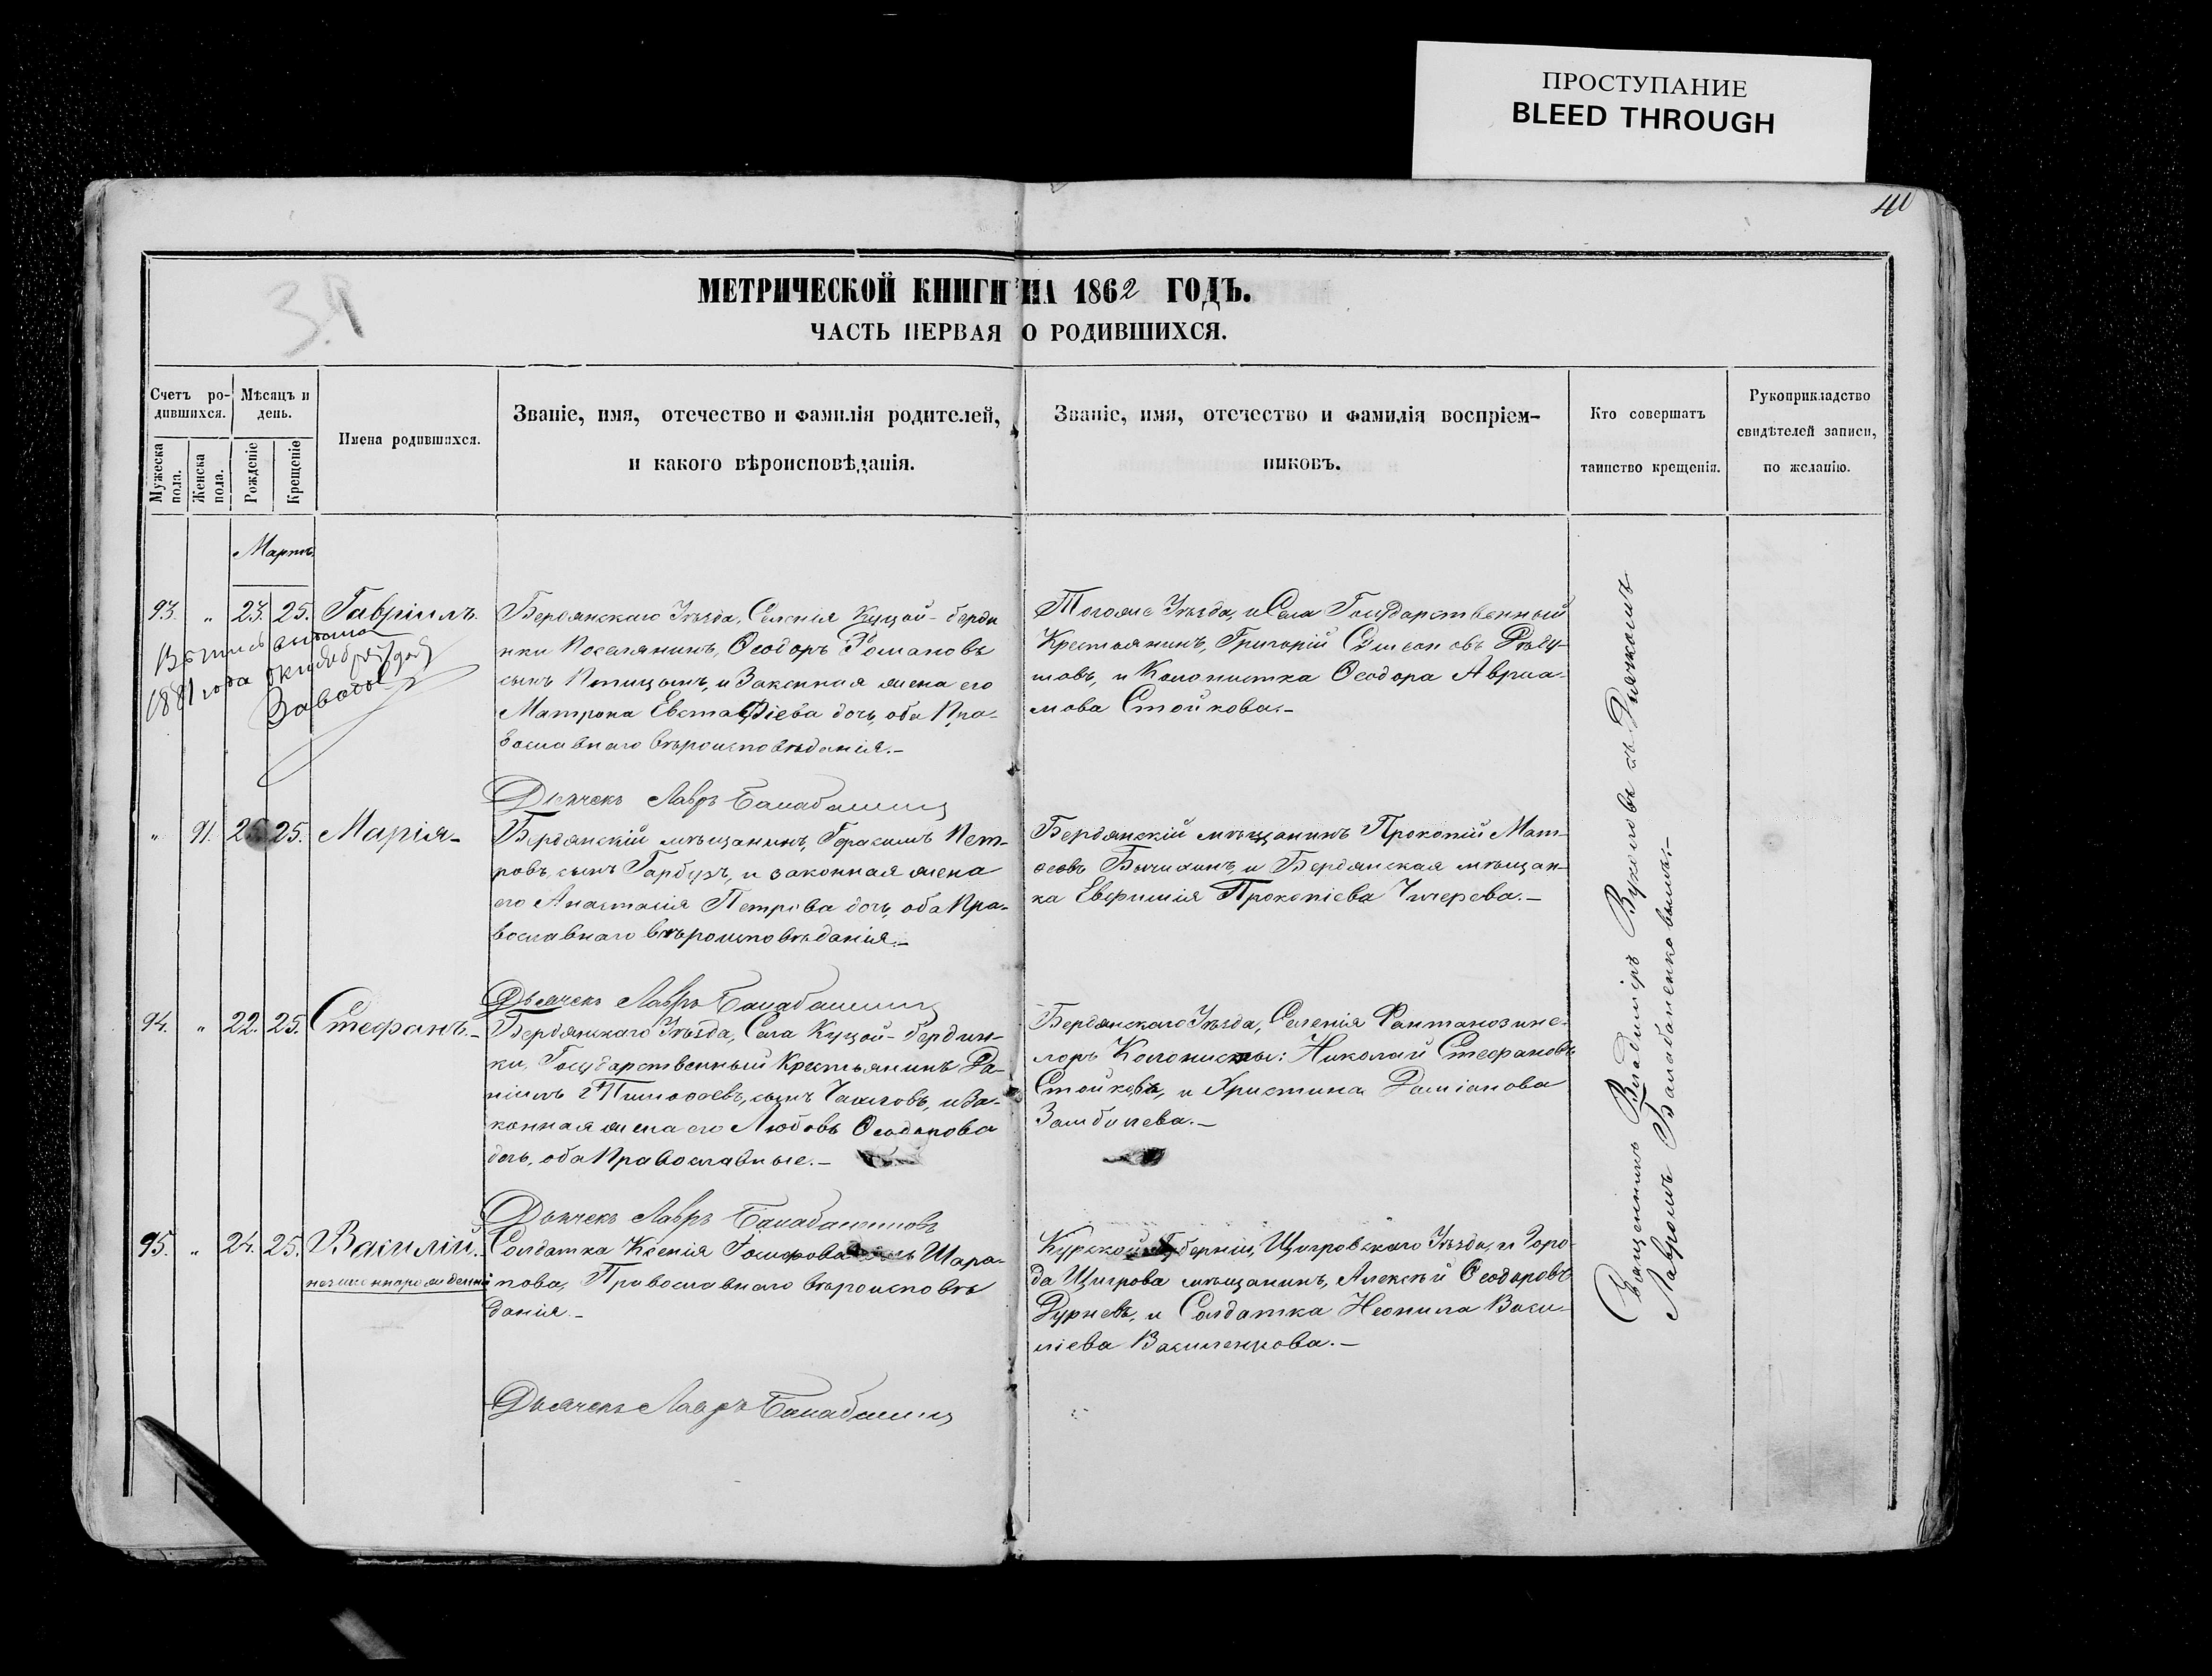 ПРОСТУПАНИЕ
BLEED THROUGH
41
39
МЕТРИЧЕСКОЙ КНИГИ НА 1862 ГОДЪ.
ЧАСТЬ ПЕРВАЯ О РОДИВШИХСЯ.
Счетъ ро-
дившихся.
Мужеска
пола.
Женска
пола.
Мѣсяцъ и
день.
Рожденіе
Крещеніе
Имена родившихся.
Званіе, имя, отечество и фамилія родителей,
и какого вѣроисповѣданія.
Званіе, имя, отечество и фамилія воспріем-
никовъ.
Кто совершатъ
таинство крещенія.
Рукоприкладство
свидѣтелей записи,
по желанію.
Мартъ
93. " 23. 25. Гавріилъ.
1881 года Октября
Бердянскаго Уѣзда, Селенія Куцой-берди
нки Поселянинъ, Ѳеодоръ Романовъ
сынъ Птицынъ, и Законная жена его
Матрона Евстафіева дочь, оба Пра-
вославнаго вѣроисповѣданія.-
Тогоже Уѣзда, и Села Государственный
Крестьянинъ, Григорій Симеоновъ
и Колонистка Ѳеодора Авраа-
мова Стойкова.-
Дьячекъ Лавръ
" 91. 25. 25. Марія-
Бердянскій мѣщанинъ, Герасимъ Пет-
ровъ, сынъ Гарбузъ, и законная жена
его Анастасія Петрова дочь, оба Пра-
вославнаго вѣроисповѣданія.-
Бердянскій мѣщанинъ Прокопій Мат-
ѳеовъ Бычихинъ, и Бердянская мѣщан-
ка Евфимія Прокопіева Чичерева.-
Дьячекъ Лавръ
94. " 22. 25. Стефанъ.-
Бердянскаго Уѣзда, Села Куцой-бердин-
ки, Государственный Крестьянинъ Да-
ніилъ Тимофеевъ, сынъ и За-
конная жена его Любовь
дочь, оба Православные.-
Бердянскаго Уѣзда, Селенія
Колонисты: Николай Стефановъ
Стойковъ, и Христина Даміанова
Замбулева.-
Дьячекъ Лавръ
95. " 24. 25. Василій.
незаконнорожденный
Солдатка Ксенія Шара-
пова, Православнаго вѣроисповѣ
данія.-
Курской Губерніи, Щигровскаго Уѣзда, и Горо-
да Щигрова мѣщанинъ, Алексѣй Ѳеодоровъ
Дурневъ, и Солдатка Неонила Васи-
ліева Василенкова.-
Дьячекъ Лавръ
Священникъ Владиміръ Вуколовъ съ Дьячкомъ
Лавромъ Балабаненковымъ.-